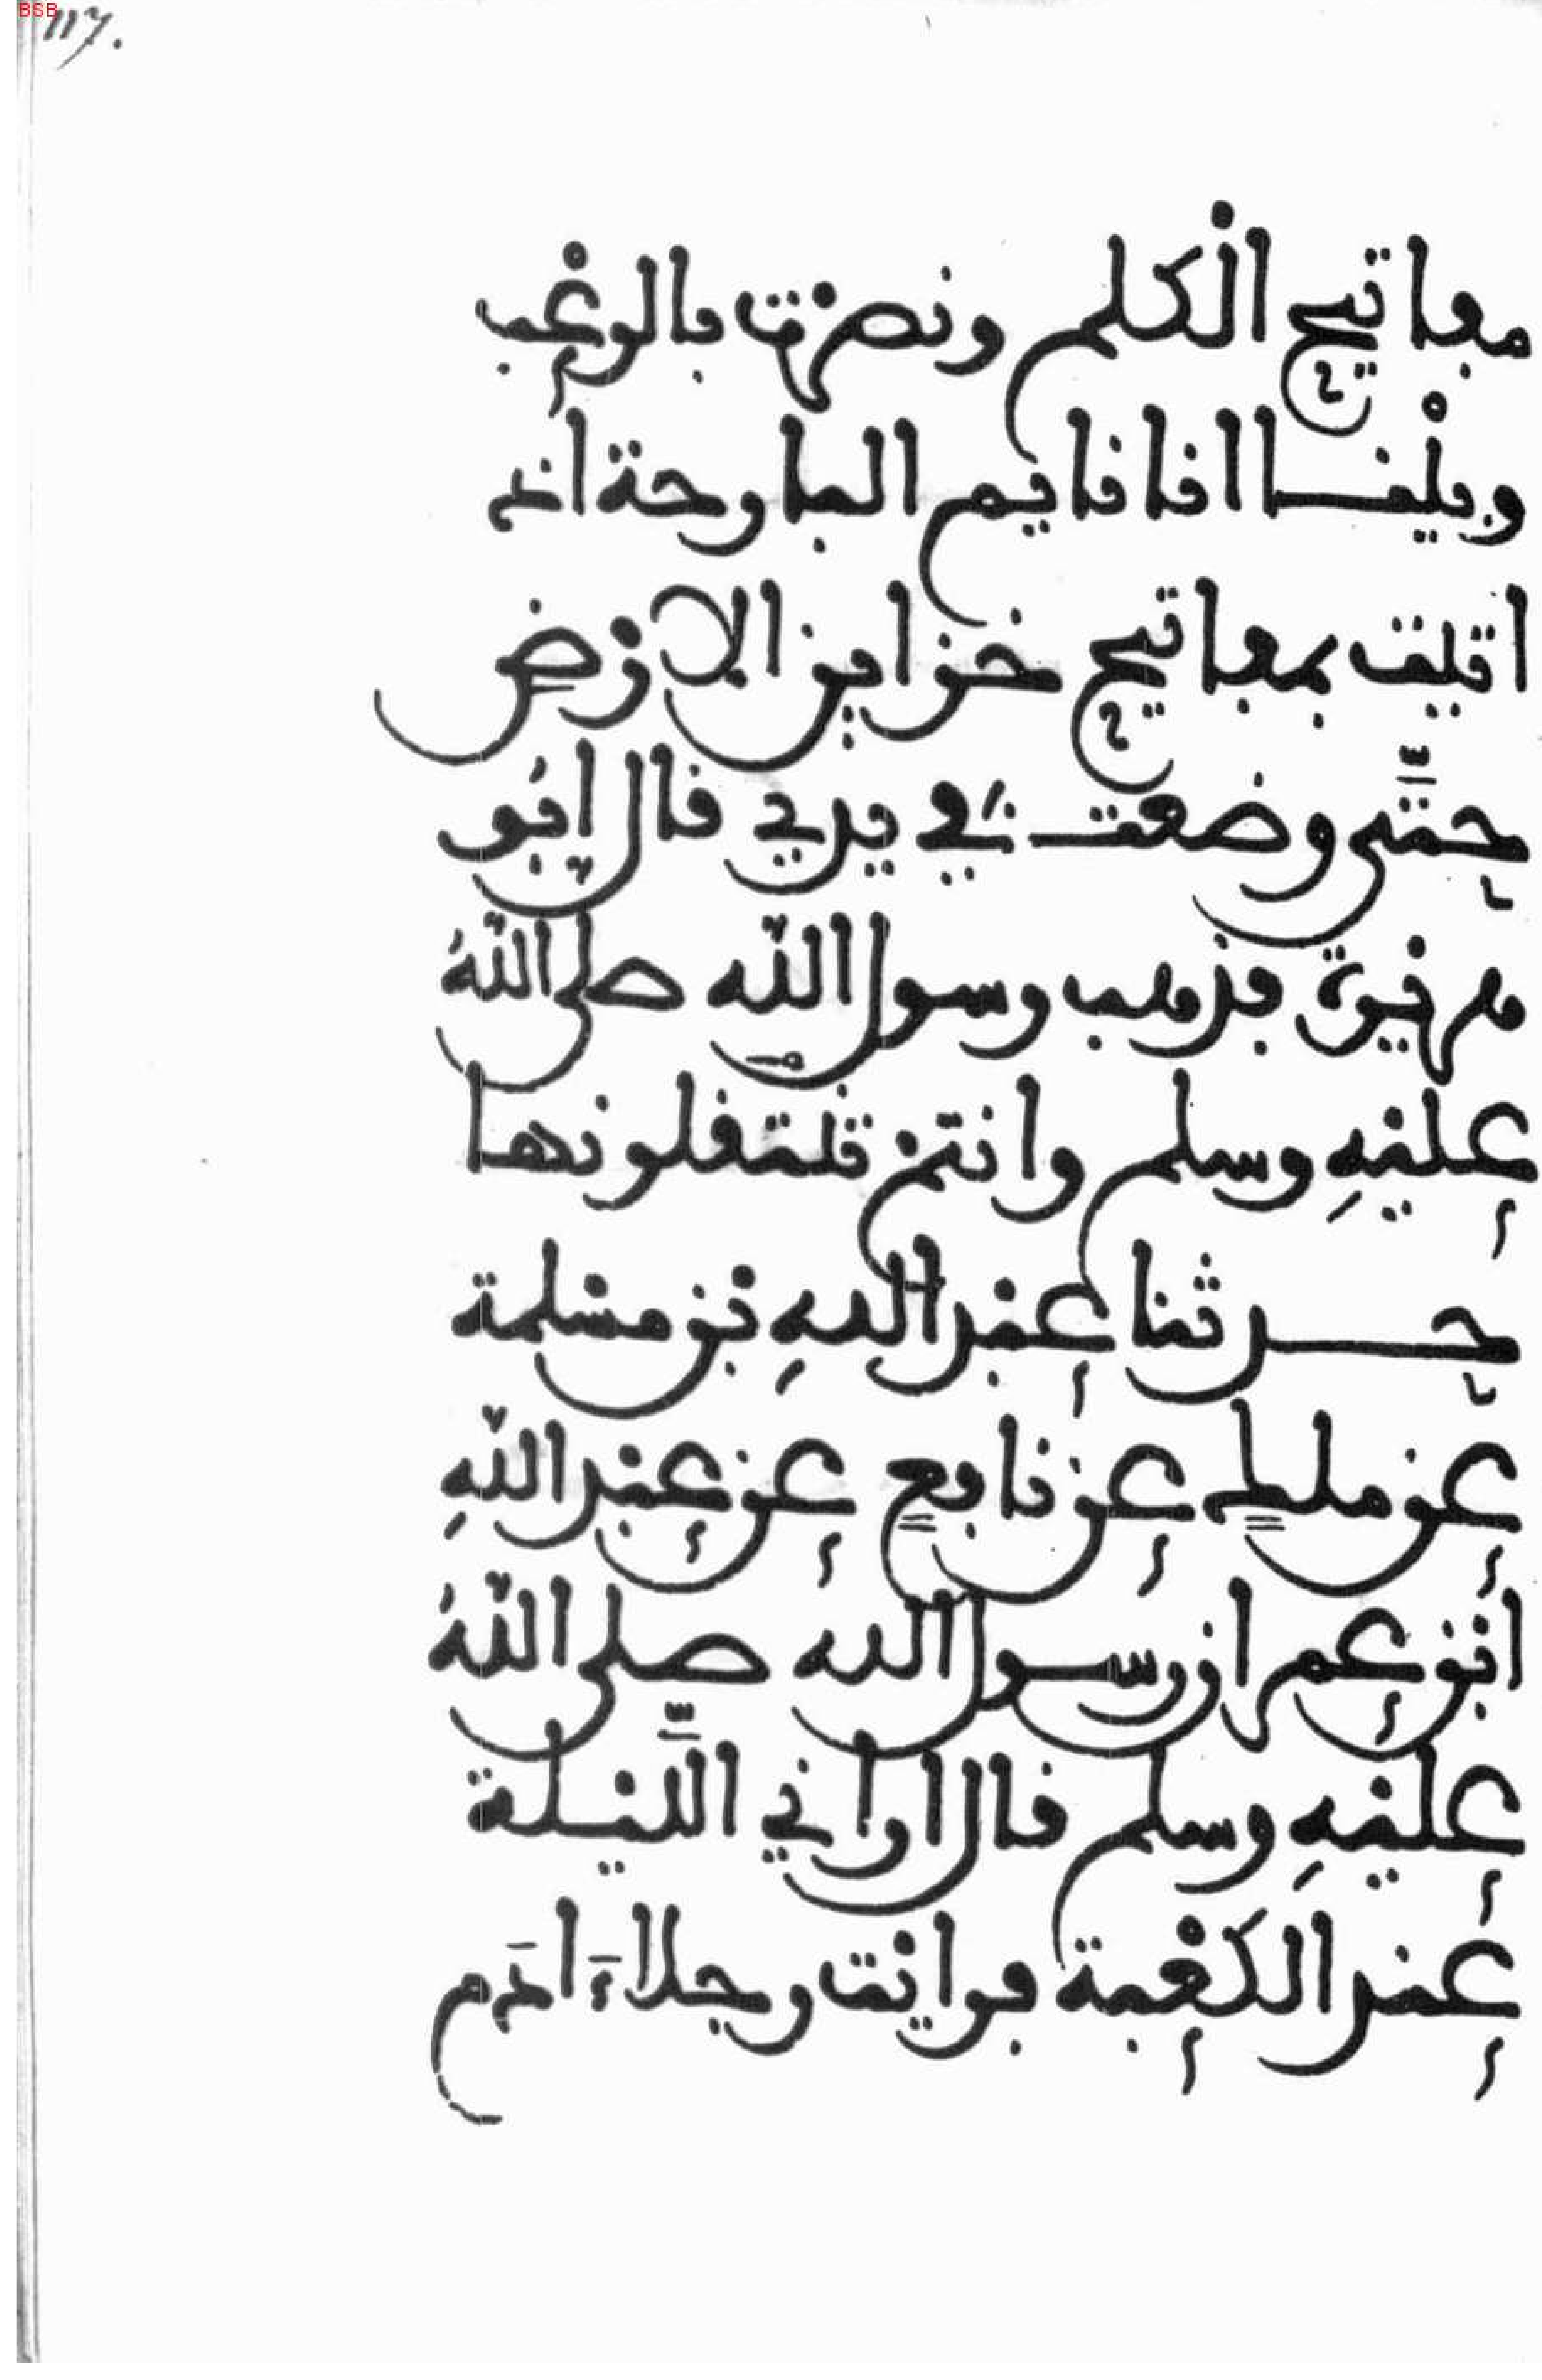 BSB
117.
مفاتيح الْكلم ونصرْت بالرعْب
وبيْنما انا نايم البارحة اذ
اتيت بمفاتيح خزاين الارْض
حتَّى وضعت في يدي قال ابُو
هريرة فذهب رسول اللّه صلى اللّهُ
عليْهِ وسلم وانتمْ تنتقلونها
حدثنا عبْد اللهِ بْن مسْلمة
عن ملك عن نافع عن عبْد اللّهِ
ابْن عمر ان رسول الله صلى اللّهُ
عليْهِ وسلم قال اراني اللَّيْلة
عند الكعْبة فرايْت رجلا ءَادَم